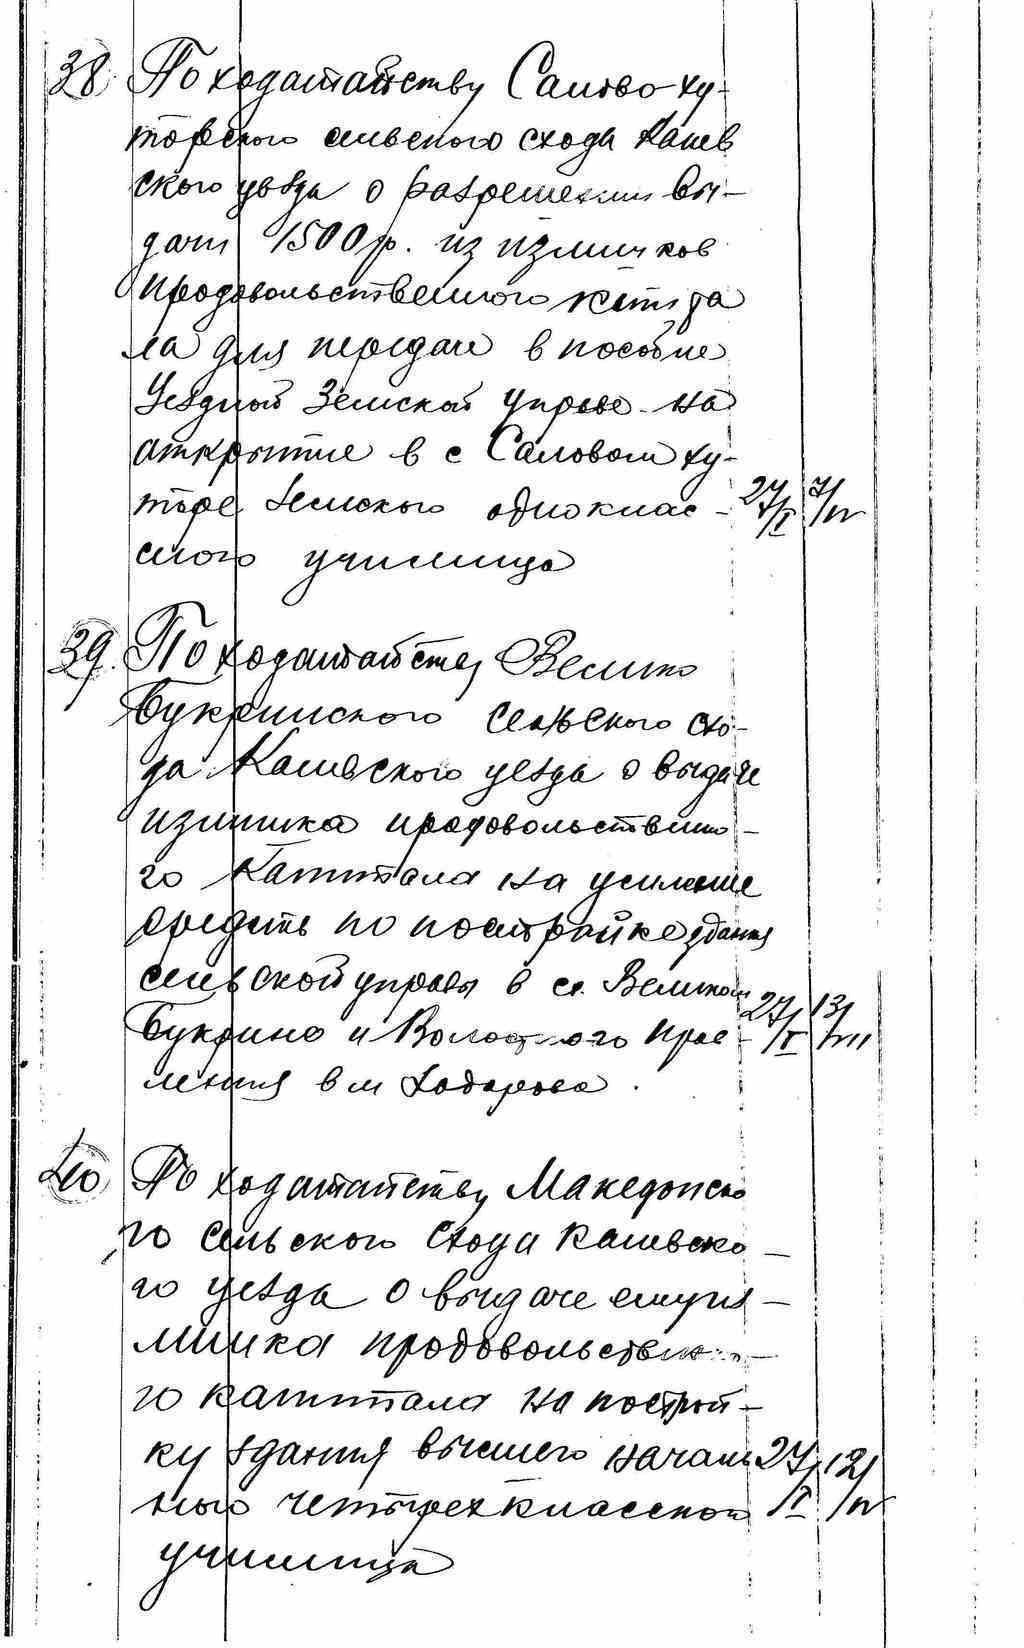 38. По ходатайству Салово-ху-
торского сельского схода Канев
ского уезда о разрешении вы-
дачи 1500 р. из излишков
продовольственного капита
ла для передачи в пособие
Уездной Земской Управе на
открытие в с Саловом ху-
торе Земского одноклас- 27/I 7/IV
сного училища
39. По ходатайству Велико
Букринского сельского схо-
да Каневского уезда о выдаче
излишка продовольственно-
го капитала на усиление
средств по постройке здания
сельской управы в с. Великом
Букрине и Волостного Прав- 27/I 13/VII
ления в м Ходорове.
40 По ходатайству Македонско
го сельского схода Каневско-
го уезда о выдаче ему из-
лишка продовольственно-
го капитала на построй-
ку здания высшего началь 27/I 12/IV
ного четырехклассного
училища